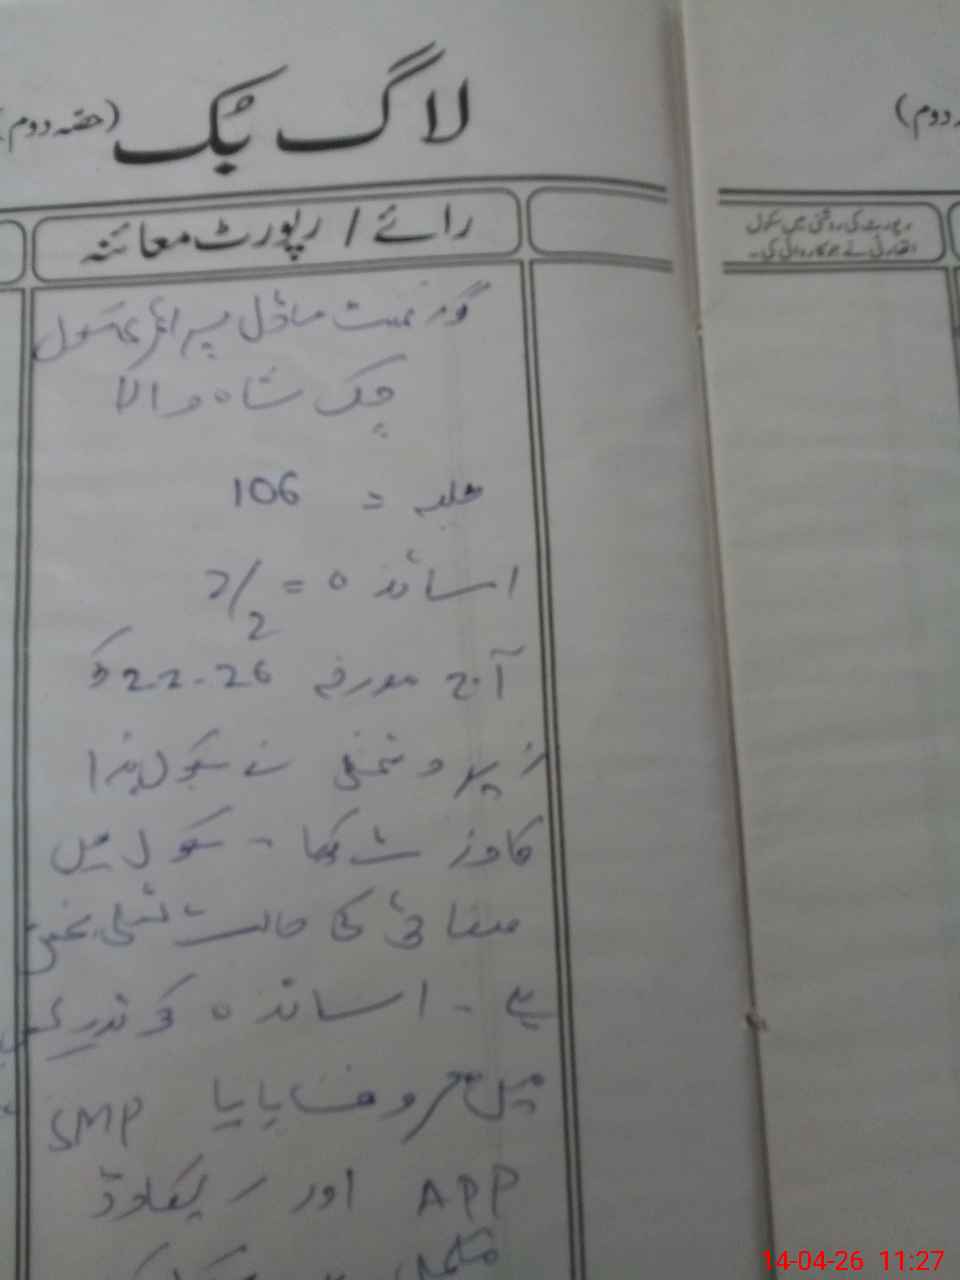 لاگ بُک (حصہ دوم)
دوم)
رائے / رپورٹ معائنہ
رپورٹ کی روشنی میں سکول
اتھارٹی نے جو کاروائی کی۔
گورنمنٹ ماڈل پرائمری سکول
چک شاہ والا
طلبہ = 106
اساتذہ = 2/2
آج مورخہ 22-26 کو
زیر دستخطی نے سکول ہذا
کا وزٹ کیا - سکول میں
صفائی کی حالت تسلی بخش
ہے - اساتذہ کو تدریس
میں مصروف پایا SMP
APP اور ریکارڈ
مکمل
14-04-26 11:27